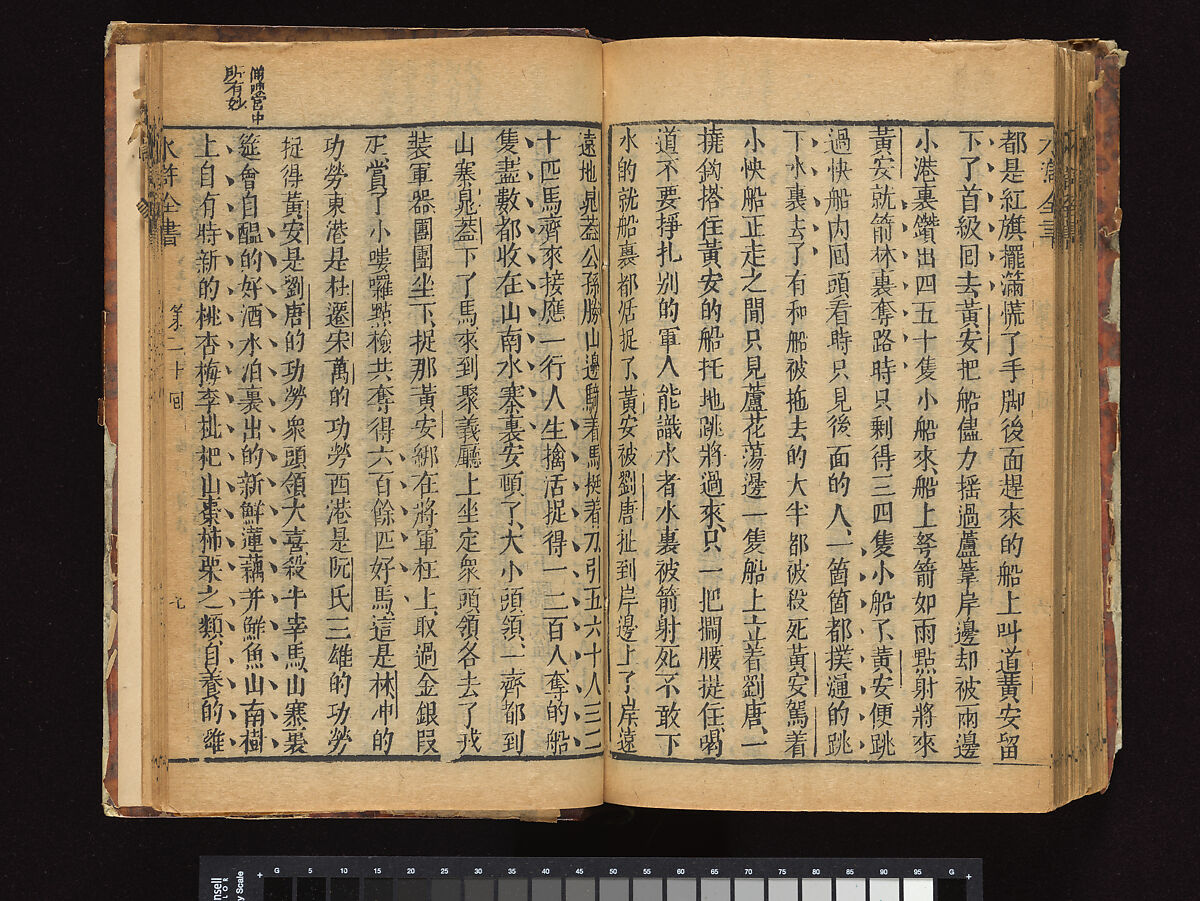 都是紅旗擺滿慌了手脚後面趕來的船上叫道黄安留
下了首級回去黄安把船儘力摇過蘆葦岸邊却被兩邊
小港裏鑽出四五十隻小船來船上弩箭如雨點射將來
黄安就箭林裏奪路時只剩得三四隻小船了黄安便跳
過快船内回頭看時只見後面的人一箇箇都撲通的跳
下水裏去了有和船被拖去的大半都被殺死黄安駕着
小快船正走之間只見蘆花蕩邊一隻船上立着劉唐一
撓鈎搭住黄安的船托地跳將過來只一把攔腰提住喝
道不要掙扎别的軍人能識水者水裏被箭射死不敢下
水的就船裏都活捉了黄安被劉唐扯到岸邊上了岸遠
遠地晁蓋公孫勝山邊騎着馬挺着刀引五六十人三二
十匹馬齊來接應一行人生擒活捉得一二百人奪的船
隻盡數都收在山南水寨裏安頓了大小頭領一齊都到
山寨晁蓋下了馬來到聚義廳上坐定衆頭領各去了戎
裝軍器團團坐下捉那黄安綁在將軍柱上取過金銀段
疋賞了小嘍囉點檢共奪得六百餘匹好馬這是林冲的
功勞東港是杜遷宋萬的功勞西港是阮氏三雄的功勞
捉得黄安是劉唐的功勞衆頭領大喜殺牛宰馬山寨裏
筵會自醞的好酒水泊裏出的新鮮蓮藕并鮮魚山南樹
上自有時新的桃杏梅李枇杷山棗柿栗之類自養的雞
水滸全書 第二十回 九
中
所有妙